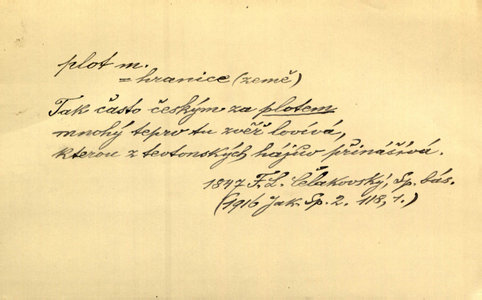 plot m.
= hranice (země)
Tak často českým za plotem
mnohý teprv tu zvěř lovívá,
kterou z teutonských hájův přinášívá.
1847 F. L. Čelakovský, Sp. bás.
(1916 Jak. Sp. 2. 118, 1.)